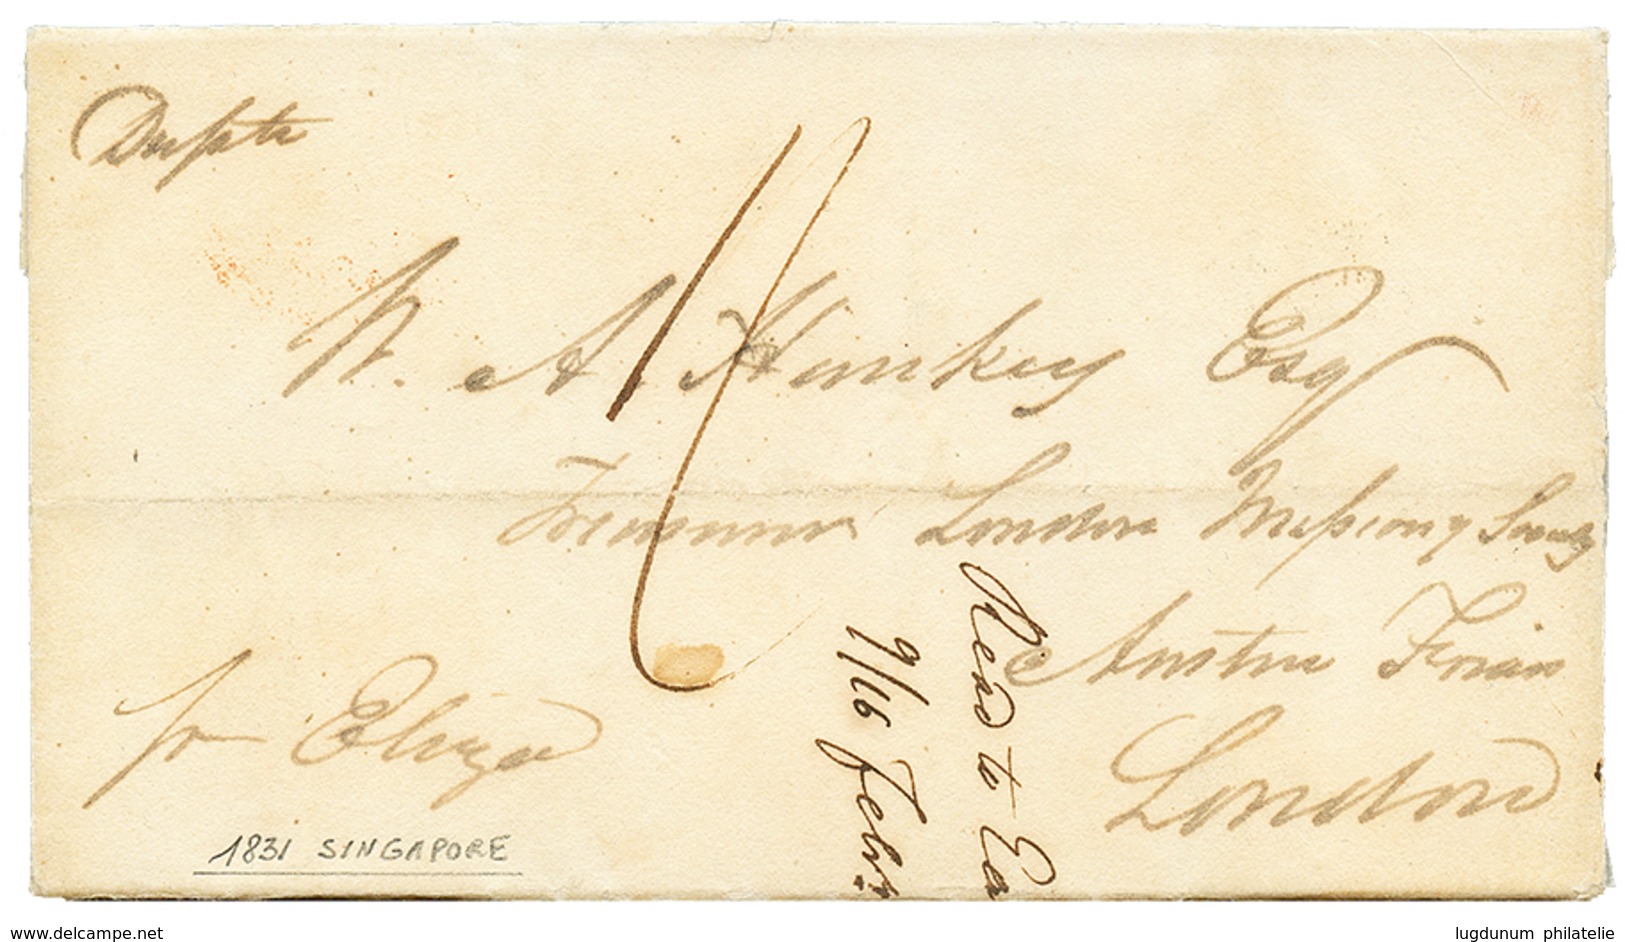 Duplte
W. A. Hankey Esq
Treasurer London Missiony Society
Austin Friars
London
pr Eliza
Read to Ea
9/16 Febry
1831 SINGAPORE
www.delcampe.net
lugdunum philatelie